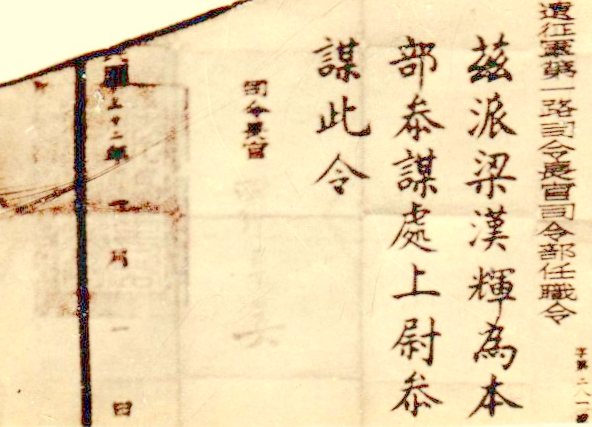 遠征軍第一路司令長官司令部任職令
字第二八一號
茲派梁漢輝為本
部參謀處上尉參
謀此令
司令長官
一日